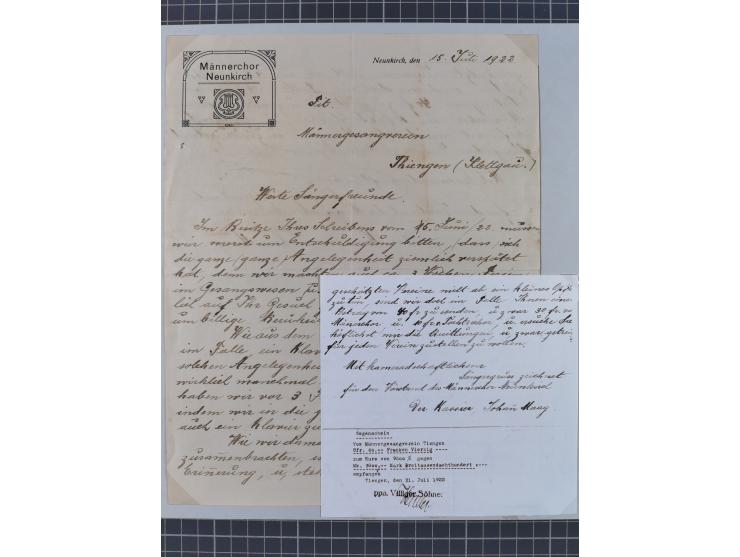 Männerchor
Neunkirch
Neunkirch, den 15. Juli 1922
Tit.
Männergesangverein
Thiengen (Klettgau.)
Werte Sängerfreunde.
Im Besitze Ihres Schreibens vom 15. Juni/22. müssen
wir vorerst um Entschuldigung bitten, dass sich
die ganze (ganze) Angelegenheit ziemlich verspätet
hat, denn wir machten auch ca 3 Wochen
im Gesangswesen
lich auf Ihr Gesuch
um billige
Wie aus dem
im Falle ein Klav
solchen Angelegenhei
wirklich manchmal
haben wir vor 3
indem wir in die g
auch ein Klavier
Wie wir dama
zusammenbrachten, u
Erinnerung, u,
geschätzten Vereine mitt at ein kleines
zu tun, sind wir doch im Falle, Ihnen einen
Betrag von 40 fr zu senden, u zwar 30 fr. v.
Männerchor u. 10 fr Töchterchor, u ersuche Sie
höflichst mir die Quittungen u zwar getren
für jeden Verein zustellen zu wollen.
Mit kameradschaftlichem
Sängergruss zeichnet
für den Vorstand des Männerchor Neunkirch
Der Kassier Johañ Maag
Gegenschein
Vom Männergesangverein Tiengen
Sfr. 40.-- Franken Vierzig ----
zum Kurs von 9500 % gegen
Mk. 3800.-- Mark Dreitausendachthundert ----
empfangen
Tiengen, den 21. Juli 1922
ppa. Villiger Söhne: